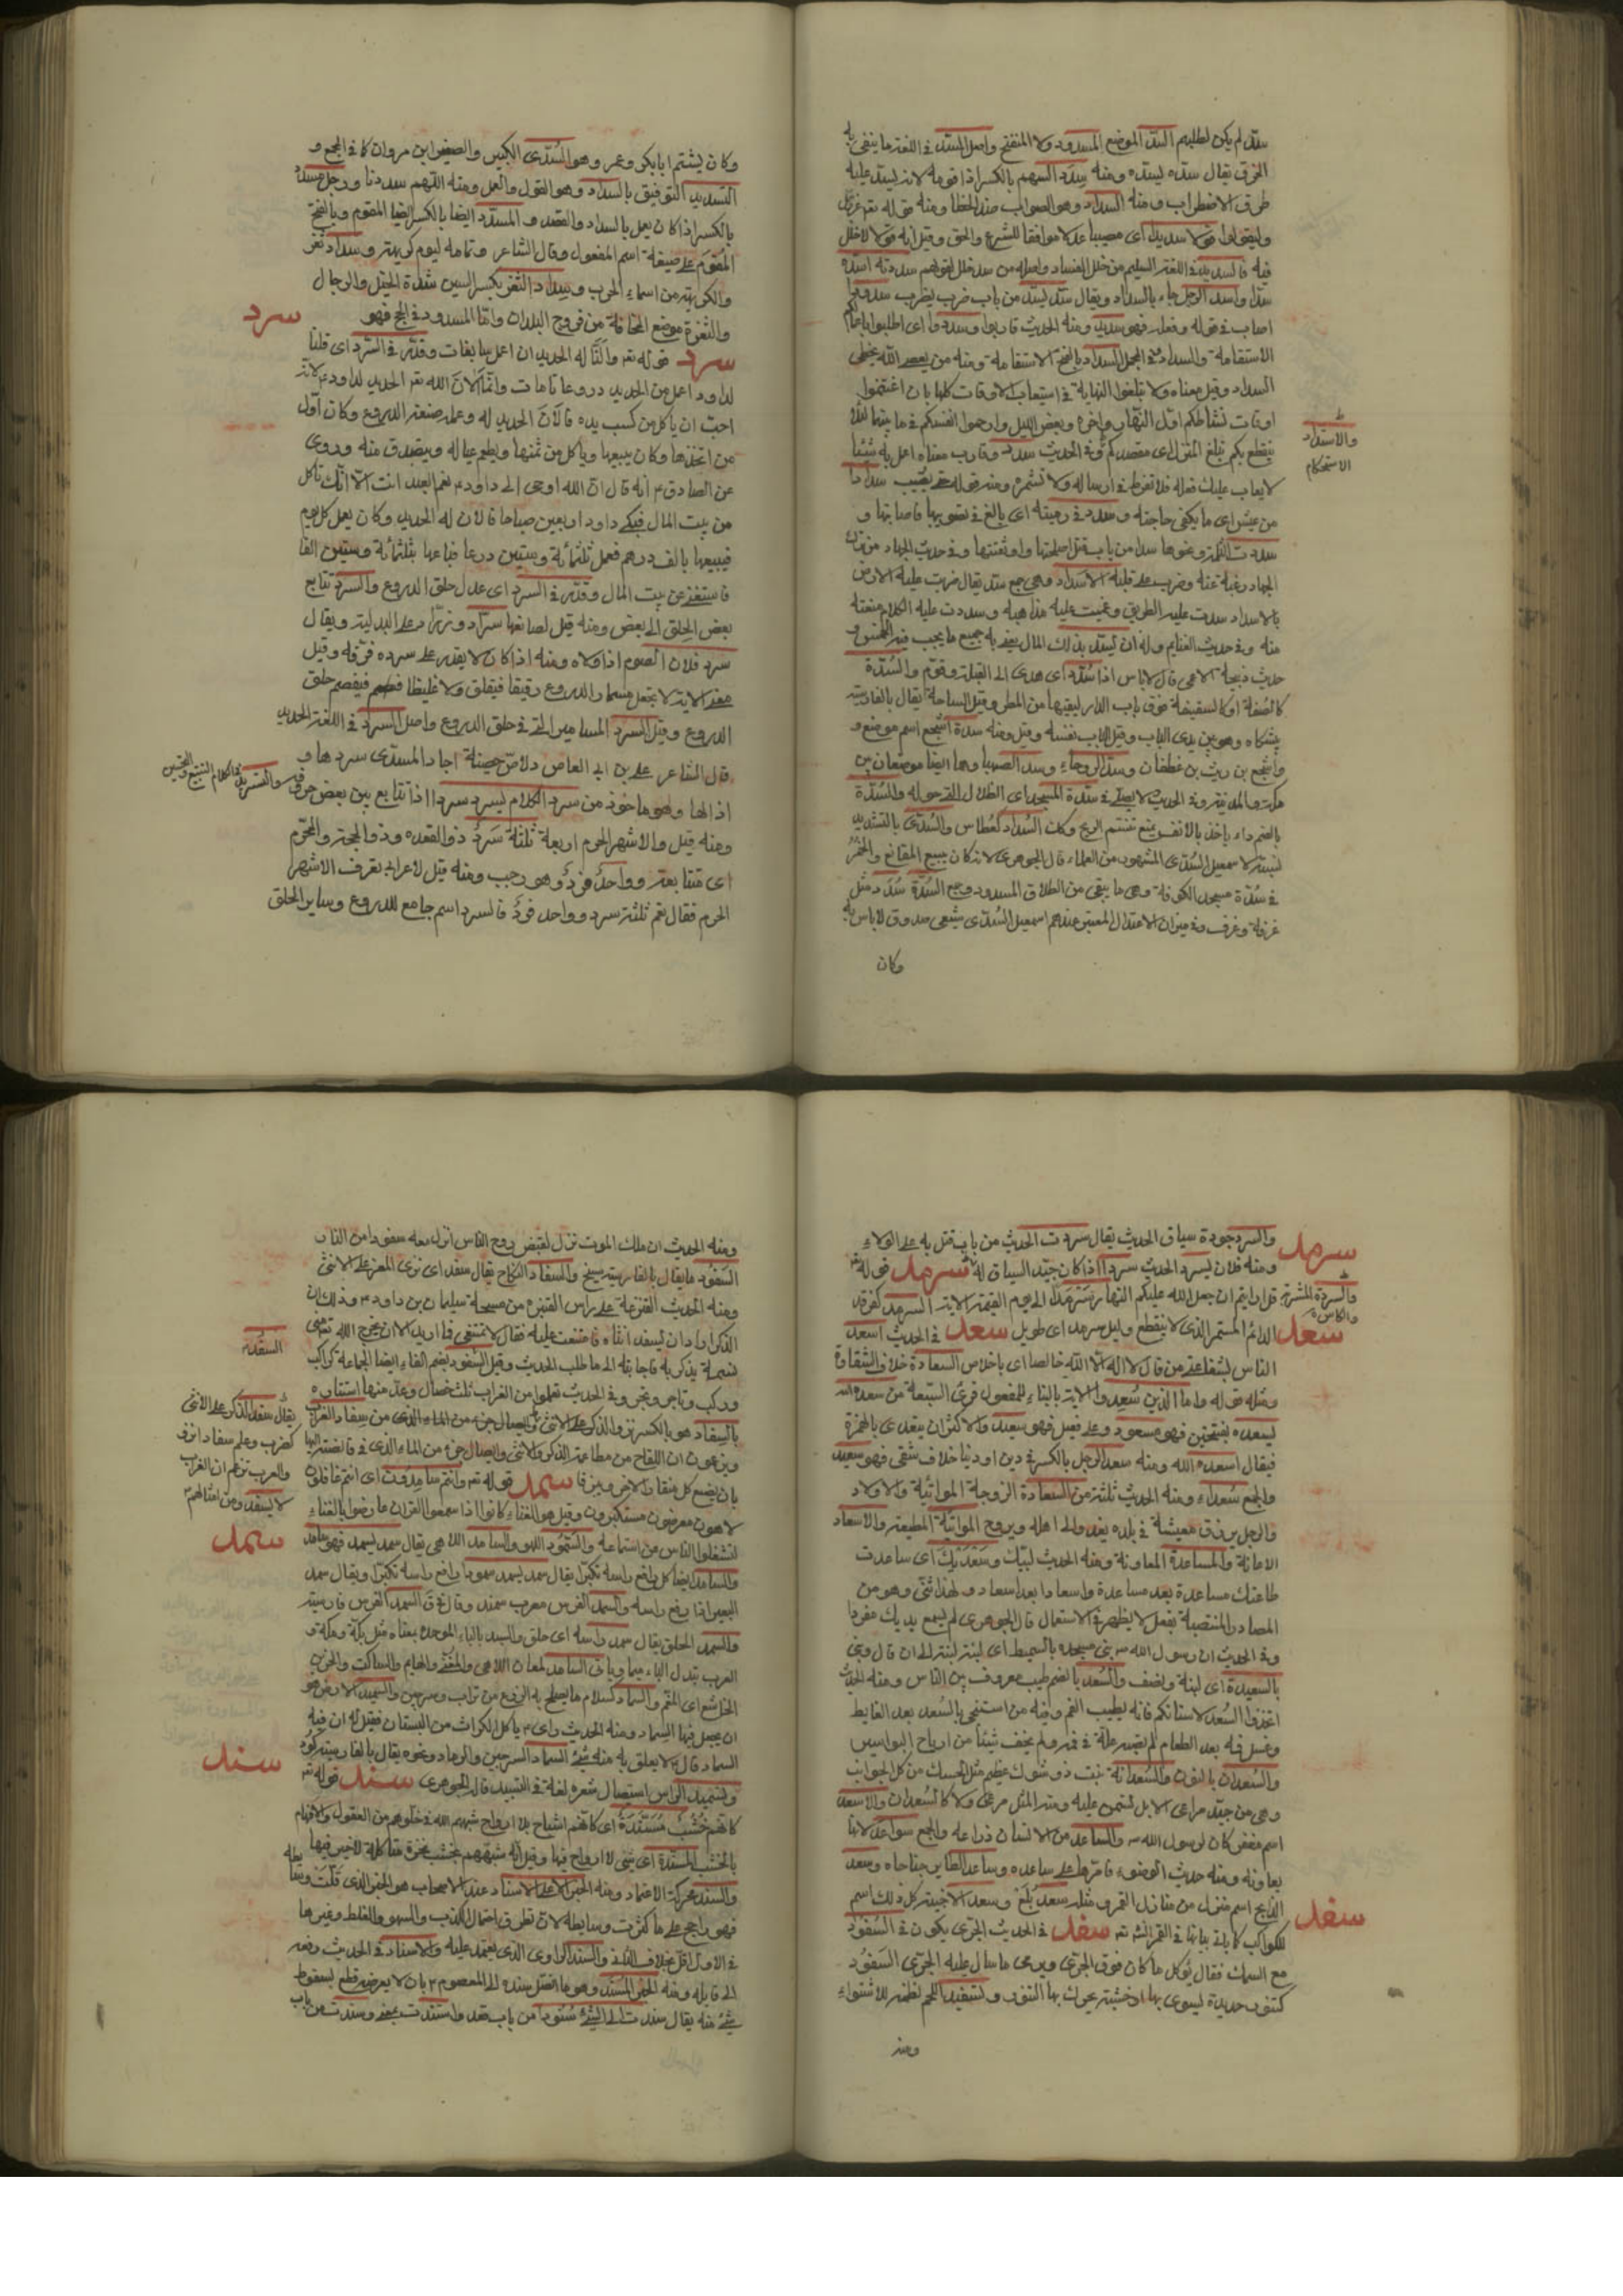 سدّ لم يكن لطلبهم السّدّ الموضع المسدود ولا المنفتح واصل السّدّ في اللغة ما ينفى به
الخرق يقال سدّه يسدّه ومنه سدد السهم بالكسر اذا قومه لانه يسد عليه
طرق الاضطراب ومنه السداد وهو الصواب ضد الخطا ومنه قوله تع
وليقولوا قولا سديدا اى مصيبا عدلا موافقا للشرع والحق وقيل انه قولا لاخلل
فيه فالسديد في اللغة السليم من خلل الفساد واصله من سد خلل لقولهم سددته اسدّه
سدّا واسد الرجل جاء بالسداد ويقال سدّ يسدّ من باب ضرب يضرب سدودا
اصاب في قوله وفعله فهو سديد ومنه الحديث قاربوا وسددوا اى اطلبوا باعمالكم
الاستقامة والسداد وفي المجمل السداد بالفتح الاستقامة ومنه من يعص الله يخطى
السداد وقيل معناه ولا تبلغوا النهاية في استيعاب الاوقات كلها بان اغتنموا
اوقات نشاطكم اول النهار واخره وبعض الليل وارحموا انفسكم في ما بينها لئلا
ينقطع بكم تبلغ المنزل اى مقصدكم وفي الحديث سدد وقارب معناه اعمل به شيئا
لا يعاب عليك فعله فلا تفرط في ارساله ولا تشمره ومنه قوله حتى يصيب سدادا
من عيش اى ما يكفى حاجته وسدد في رميته اى بالغ في تصويبها واصابتها و
سددت الثلمة ونحوها سدا من باب قتل اصلحتها واوثقتها وفي حديث الجهاد من ترك
الجهاد رغبة عنه وضرب على قلبه الاسداد وهي جمع سد يقال ضربت عليه الارض
بالاسداد سدت عليه الطريق وعميت عليه مذاهبه وسددت عليه الكلام منعته
منه وفي حديث الغنايم وله ان يسد بذلك المال يعنى به جميع ما يجب فيه الخمس و
حديث ذبيحة الاعمى قال لا باس اذا سدد اى هدى الى القبلة وقوّم والسّدّة
كالصفة او كالسقيفة فوق باب الدار ليقيها من المطر وقيل الساحة يقال بالفارسية
پيشكاه وهو بين يدى الباب وقيل الباب نفسه وقيل ومنه سدة اشجع اسم موضع و
واشجع بن ريث بن غطفان وسد الروحاء وسد الصهبا وهما ايضا موضعان بين
مكة والمدينة وفي الحديث لا يصلى في سدة المسجد اى الظلال التى حوله والسّدّة
بالضم داء ياخذ بالانف يمنع تنسم الريح وكذا السُداد كعُطاس والسُدّى بالتشديد
نسبة لاسمعيل السُدّى المشهور من العلماء قال الجوهرى لانه كان يبيع المقانع والخُمُر
في سُدّة مسجد الكوفة وهي ما يبقى من الطلاق المسدود وجمع السُدّة سُدَد مثل
غرفة وغرف وفي ميزان الاعتدال المعتبر عندهم اسمعيل السُدّى شيعى صدوق لا باس به
وكان
والاستداد
الاستحكام
وكان يشتم ابابكر وعمر وهو السُدّى الكبير والصغير ابن مروان كذا في المجمع و
التسديد التوفيق بالسداد وهو القول والعمل ومنه اللهم سددنا ورجل مسدد
بالكسر اذا كان يعمل بالسداد والقصد و المسدد ايضا بالكسر ايضا المقوم وبالفتح
المقوَم على صيغة اسم المفعول وقال الشاعر وتمامه ليوم كريهة وسداد ثغر
والكريهة من اسماء الحرب وسداد الثغر بكسر السين سدّة الخيل والرجال
والثغرة موضع المخافة من فروج البلدان واما المسدود في الحج فهو
سرد
سرد قوله تع والنّا له الحديد ان اعمل سابغات وقدّر في السّرد اى قلنا
لداود اعمل من الحديد دروعا تامات وانما الان الله تع الحديد لداود ع لانه
احبّ ان ياكل من كسب يده فالان الحديد له وعلمه صنعة الدروع وكان اول
من اتخذها وكان يبيعها وياكل من ثمنها ويطعم عياله ويتصدق منه وروى
عن الصادق ع انه قال ان الله اوحى الى داود ع نعم العبد انت الّا انّك تاكل
من بيت المال فبكى داود اربعين صباحا فالان له الحديد وكان يعمل كل يوم
فيبيعها بالف درهم فعمل ثلثمائة وستين درعا فباعها بثلثمائة وستين الفا
فاستغنى عن بيت المال وقدّر في السرد اى عدل حلق الدروع والسرد تتابع
بعض الحلق الى بعض ومنه قيل لصانعها سرّاد وزرّاد على البدلية ويقال
سرد فلان الصوم اذا والاه ومنه اذا كان لا يقدر على سرده فرّقه وقيل
معنى الاية لا تجعل مسمار الدروع رقيقا فيقلق ولا غليظا فيفصم حلق
الدروع وقيل السرد المسامير التى في حلق الدروع واصل السرد في اللغة الحديد
قال الشاعر على بن ابى العاص دلاصّ حصينة اجاد المسدّى سردها و
اذالها وهو ماخوذ من سرد الكلام يسرد سردا اذا تتابع بين بعض حروفه
ومنه قيل والاشهر الحرم اربعة ثلثة سَردٌ ذو القعدة وذو الحجة والمحرّم
اى متتابعة وواحدٌ فردٌ وهو رجب ومنه قيل لاعرابى تعرف الاشهر
الحرم فقال نعم ثلثة سرد وواحد فردٌ فالسرد اسم جامع للدروع وساير الحلق
والسرد جودة سياق الحديث يقال سردت الحديث من باب قتل به على الولاء
ومنه فلان يسرد الحديث سردا اذا كان جيّد السياق له سرمد قوله تع
قل ارايتم ان جعل الله عليكم النهار سَرْمَدًا الى يوم القيمة الاية السرمد كفرقد
الدائم المستمر الذى لا ينقطع وليل سرمد اى طويل سعد في الحديث اسعد
سرمد
سعد
الناس بشفاعتى من قال لا اله الّا الله خالصا اى باخلاص السعادة خلاف الشقاوة
ومثله قوله واما الذين سُعِدوا الاية بالبناء للمفعول قرئ السبعة من سعده الله
يسعده بفتحتين فهو مسعود وعلى فعيل فهو سعيد والاكثر ان يتعدى بالهمزة
فيقال اسعده الله ومنه سعد الرجل بالكسر في دين او دنيا خلاف شقى فهو سعيد
والجمع سُعداء ومنه الحديث ثلثة من السعادة الزوجة المواتية والاولاد
والرجل يرزق معيشة في بلده يغدو الى اهله ويروح المواتية المطيعة والاسعاد
الاعانة والمساعدة المعاونة ومنه الحديث لبيّك وسَعْدَيْكَ اى ساعدت
طاعتك مساعدة بعد مساعدة واسعادا بعد اسعاد ولهذا ثنّى وهو من
المصادر المنتصبة بفعل لا يظهر في الاستعمال قال الجوهرى لم يسمع يديك مفردا
وفي الحديث ان رسول الله ص بنى مسجده بالسميط اى لبنة لبنة الى ان قال وبنى
بالسعيدة اى لبنة ونصف والسُعد بالضم طيب معروف بين الناس ومنه الحديث
اتخذوا السُعد لاسنانكم فانه يطيب الفم وفيه من استنجى بالسُعد بعد الغايط
وغسل فمه بعد الطعام لم تصبه علّة في فمه ولم يخف شيئا من ارياح البواسير
والسُعدان بالنون والسُعدانة نبت ذو شوك عظيم مثل الحسك من كل الجوانب
وهى من جيّد مراعى الابل تسمن عليه ومنه المثل مرعى ولا كالسعدان والاسعد
اسم مغفر كان لرسول الله ص والساعد من الانسان ذراعه والجمع سواعد لانها
يعاونه ومنه حديث الوضوء فامرّها على ساعده وساعد الطاير جناحاه وسعد
الذابح اسم منزل من منازل القمر ومثله سعدُ بُلَعَ وسعد الاخبية كل ذلك اسم
للكواكب كما ياتى بيانها في القمر انشه تع سفد في الحديث الجرّى يكون في السّفّود
سفد
مع السمك فقال يؤكل ما كان فوق الجرّى ويرمى ما سال عليه الجرّى السَفّود
كتنّور حديدة يشوى بها او خشبة يحرك بها التنور وتسفيد اللحم نظمه للاشتواء
ومنه
ومنه الحديث ان ملك الموت نزل لقبض روح الناس انزل معه سفودا من النار
السَفّود ما يقال بالفارسية سيخ والسفاد النكاح يقال سفد اى نزى المعز على الانثى
ومنه الحديث القنزعة على راس القنبرة من مسحة سليمان بن داود ع وذلك ان
الذكر اراد ان يسفد انثاه فامتنعت عليه فقال لا تمتنعى فما اريد الا ان يخرج الله تع منى
نسمة يذكر به فاجابته الى ما طلب الحديث وقيل السُفود بضم الفاء ايضا الجماعة كراكب
وركب وتاجر وتجر وفي الحديث تعلموا من الغراب ثلث خصال وعدّ منها استتاره
بالسفاد هو بالكسر نزو الذكر على الانثى
ويزعمون ان اللقاح من مطاعمة الذكر والانثى وايصال جزء من الماء الذى في قانصته اليها
بان يضع كل منهما منقاره في الاخر ويزقا سمد قوله تع وانتم سامدون اى انتم غافلون
لاهون معرضون مستكبرون وقيل هو الغناء كانوا اذا سمعوا القران عارضوا بالغناء
سمد
لتشغلوا الناس من استماعه والسّمود اللهو والسامد اللاهى يقال سمد يسمد فهو سامد
والسامد ايضا كل رافع راسه تكبرا يقال سمد يسمد سمودا رافع راسه تكبرا ويقال سمد
البعير اذا رفع راسه والسمند الفرس معرب سمند وقال في ق السمند الفرس فارسية
والسمد الحلق يقال سمد راسه اى حلق والسبد بالباء الموحدة بمعناه مثل بكة ومكة و
العرب تبدل الباء ميما وياتى السامد لمعان اللاهى والمغنّى والهايم والساكت والحزين
الخاشع اى المغتم والسماد كسلام ما يصلح به الزرع من تراب وسرجين والتسميد الارض هو
ان يجعل فيها السماد ومنه الحديث راى ع ياكل الكراث من البستان فقيل له ان فيه
السماد قال ع لا يعلق به منه شئ السماد السرجين والرماد ونحوه يقال بالفارسية كود
وتسميد الراس استيصال شعره لغة في التسبيد قال الجوهرى سند قوله تع
سند
كانهم خُشُبٌ مُسَنَّدَةٌ اى كانهم اشباح بلا ارواح شبههم الله في خلوهم من العقول والافهام
بالخشب المسندة اى شئ لا ارواح فيها وقيل انه شبههم بخشب نخرة متاكلة لا خير فيها
والسند محركة الاعتماد ومنه الخبر الاعلى الاسناد عند الاصحاب هو الخبر الذى قلّت وسائطه
فهو راجح على ما كثرت وسايطه لان تطرق احتمال الكذب والسهو والغلط وغيرها
في الاول اقل بخلاف الثانى والسند الراوى الذى يعتمد عليه والاسناد في الحديث رفعه
الى قايله ومنه الخبر المسند وهو ما اتصل سنده الى المعصوم ع بان لا يعرضه قطع بسقوط
شئ منه يقال سندت الى الشئ سنودا من باب قعد واستندت بمعنى وسندت من باب
يقال سفد الذكر على الانثى
كضرب وعلم سفادا نزى
والعرب تزعم ان الغراب
لا يسفد ومن امثالهم